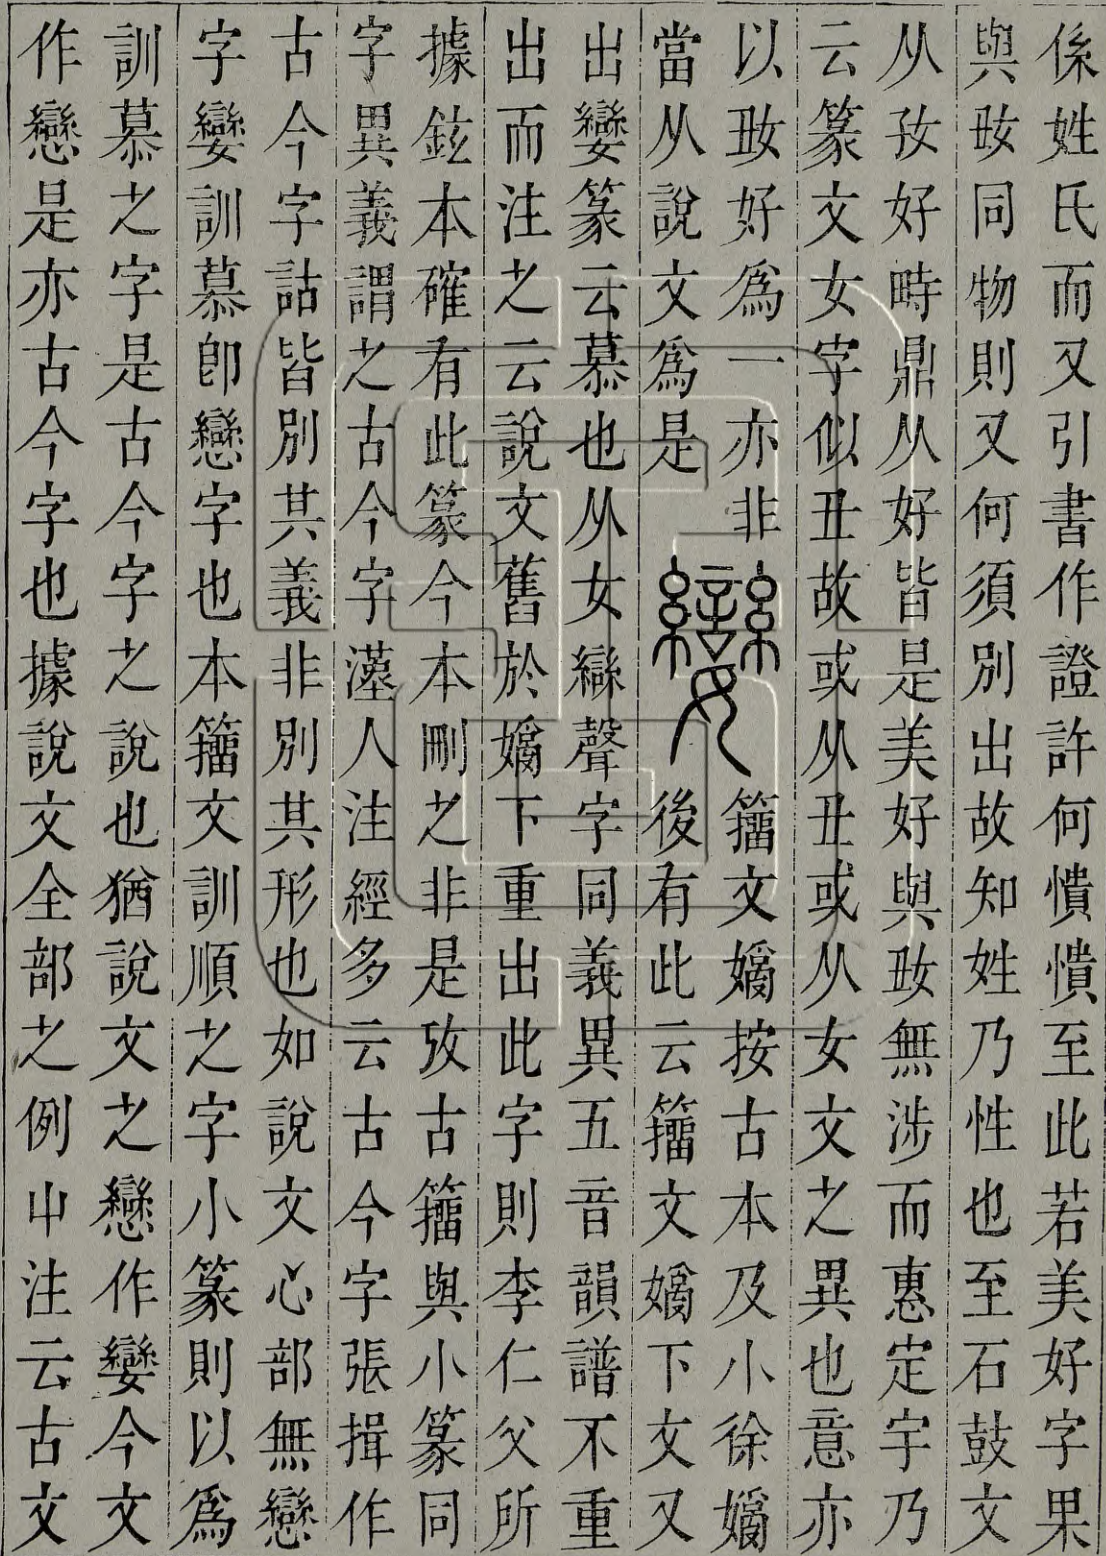 係姓氏而又引書作證許何憒憒至此若美好字果
與𡚽同物則又何須別出故知姓乃性也至石鼓文
从㝅好畤鼎从好皆是美好與𡚽無涉而惠定宇乃
云篆文女字似丑故或从丑或从女文之異也意亦
以𡚽好爲一亦非
當从說文爲是
孌
籀文㜻按古本及小徐㜻
後有此云籀文㜻下文又
出孌篆云慕也从女䜌聲字同義異五音韻譜不重
出而注之云說文舊於㜻下重出此字則李仁父所
據鉉本確有此篆今本刪之非是攷古籀與小篆同
字異義謂之古今字漢人注經多云古今字張揖作
古今字詁皆別其義非別其形也如說文心部無戀
字孌訓慕卽戀字也本籀文訓順之字小篆則以爲
訓慕之字是古今字之說也猶說文之戀作孌今文
作戀是亦古今字也據說文全部之例屮注云古文